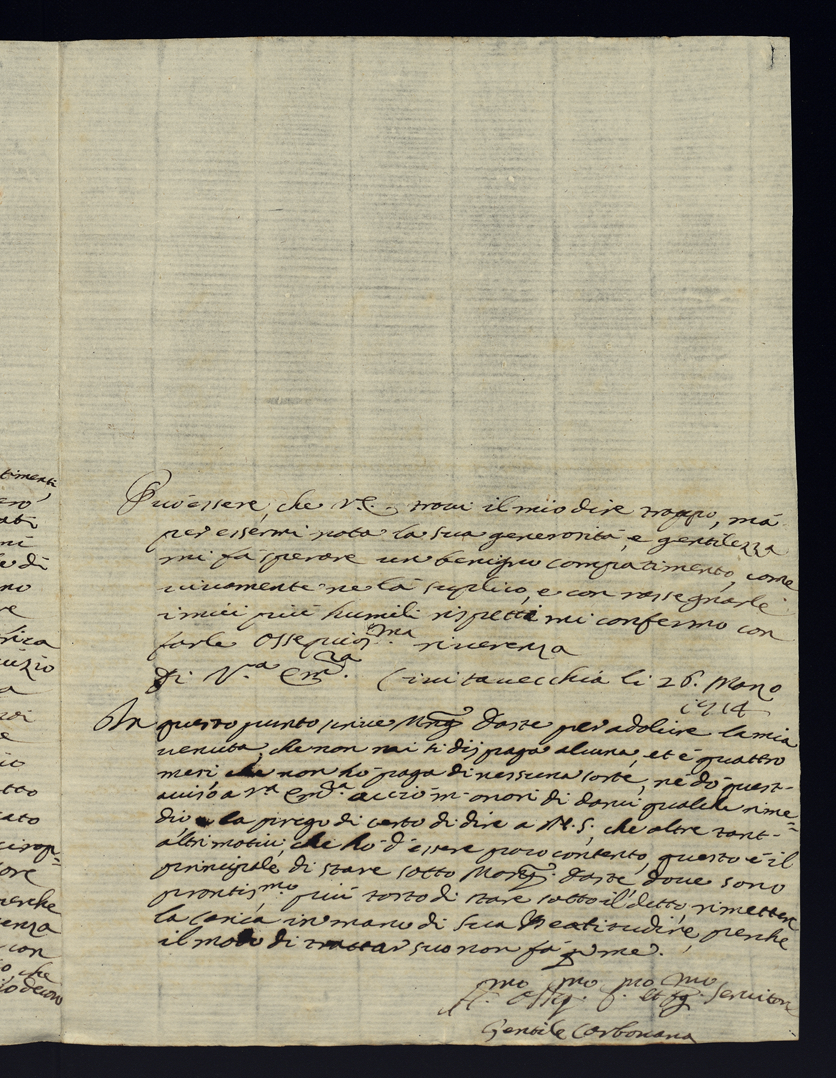 timenti
di
no
re
a
e
tto
cato
tore
perche
con
che
Può essere, che V.E. trovi il mio dire troppo, mà
per essermi nota la sua generosità, e gentilezza
mi fà sperare un benigno compatimento, come
vivamente ne la suplico, e con rassegnarle
i miei più humili rispetti mi confermo con
farle ossequios.ma riverenza
Di V.a Em.za Civitavecchia li 26. Marzo
1714
In questo punto scrive Mong.r Daste per adolcire la mia
venuta, che non mai ti di paga alcuna, et è quattro
mesi che non hò paga di nessuna sorte, ne dò quest-
aviso a V.a Em.a acciò m-onori di darvi qualche rime=
dio e la prego di certo di dire a N.S. che altre tant-
altri motivi, che hò d'essere poco contento, questo è il
principale di stare sotto Mong.r Daste dove sono
prontis.mo più tosto di stare sotto il detto, rimettere
la carica in mano di Sua Beatitudine, perche
il modo di trattar suo non fà p me.
H.mo Osseq.mo Servitore
Gentile Carbonana